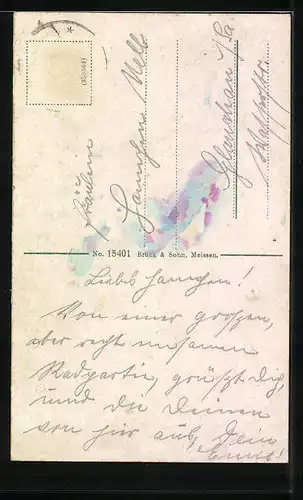 Fräulein
Hannchen Kelle
Glauchau i/Sa
No. 15401 Brück & Sohn, Meissen.
Liebes Hannchen!
Von einer großen,
aber recht
Radpartie, grüßt Dich,
und die Deinen
von hier aus, Dein
Emil!